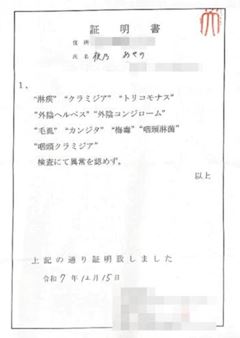 証明書
住所
氏名 夜乃 あやの
1、
“淋疾” “クラミジア” “トリコモナス”
“外陰ヘルペス” “外陰コンジローム”
“毛虱” “カンジタ” “梅毒” “咽頭淋菌”
“咽頭クラミジア”
検査にて異常を認めず。
以上
上記の通り証明致しました
令和7年12月15日